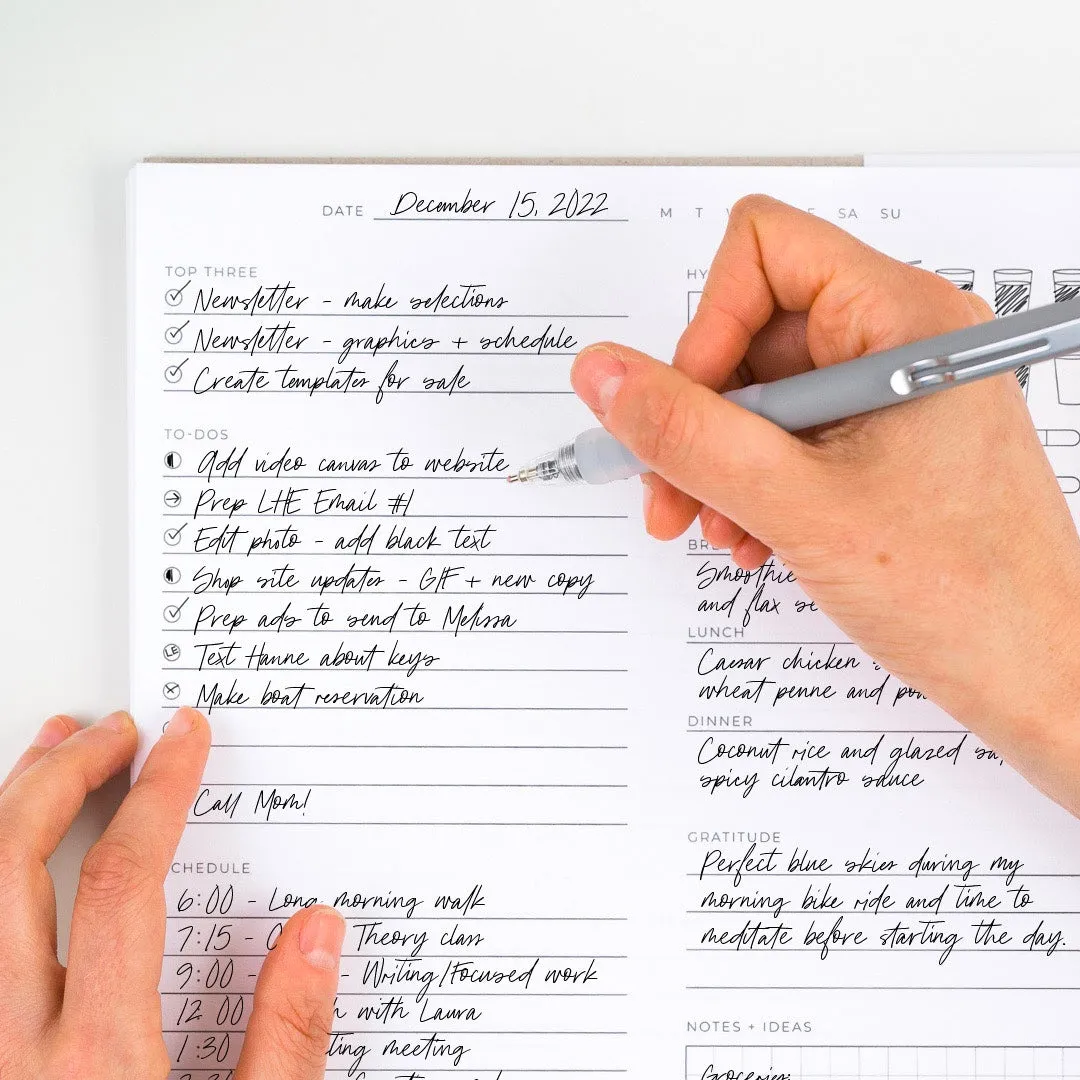 DATE December 15, 2022 M T SA SU
TOP THREE
Newsletter - make selections
Newsletter - graphics + schedule
Create templates for sale
TO-DOS
Add video canvas to website
Prep LHE Email #1
Edit photo - add black text
Shop site updates - GIF + new copy
Prep ads to send to Melissa
LE Text Hanne about keys
Make boat reservation
Call Mom!
SCHEDULE
6:00 - Long morning walk
7:15 - Theory class
9:00 - - Writing/Focused work
12 00 with Laura
1:30 meeting
Smoothie
and flax
LUNCH
Caesar chicken
wheat penne and
DINNER
Coconut rice and glazed
spicy cilantro sauce
GRATITUDE
Perfect blue skies during my
morning bike ride and time to
meditate before starting the day.
NOTES + IDEAS
Groceries: